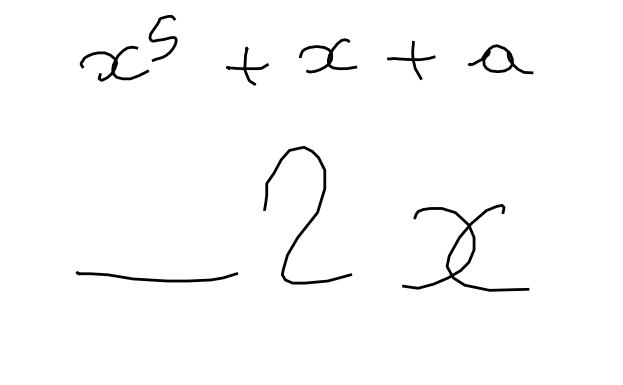 x⁵ + x + a
_2x